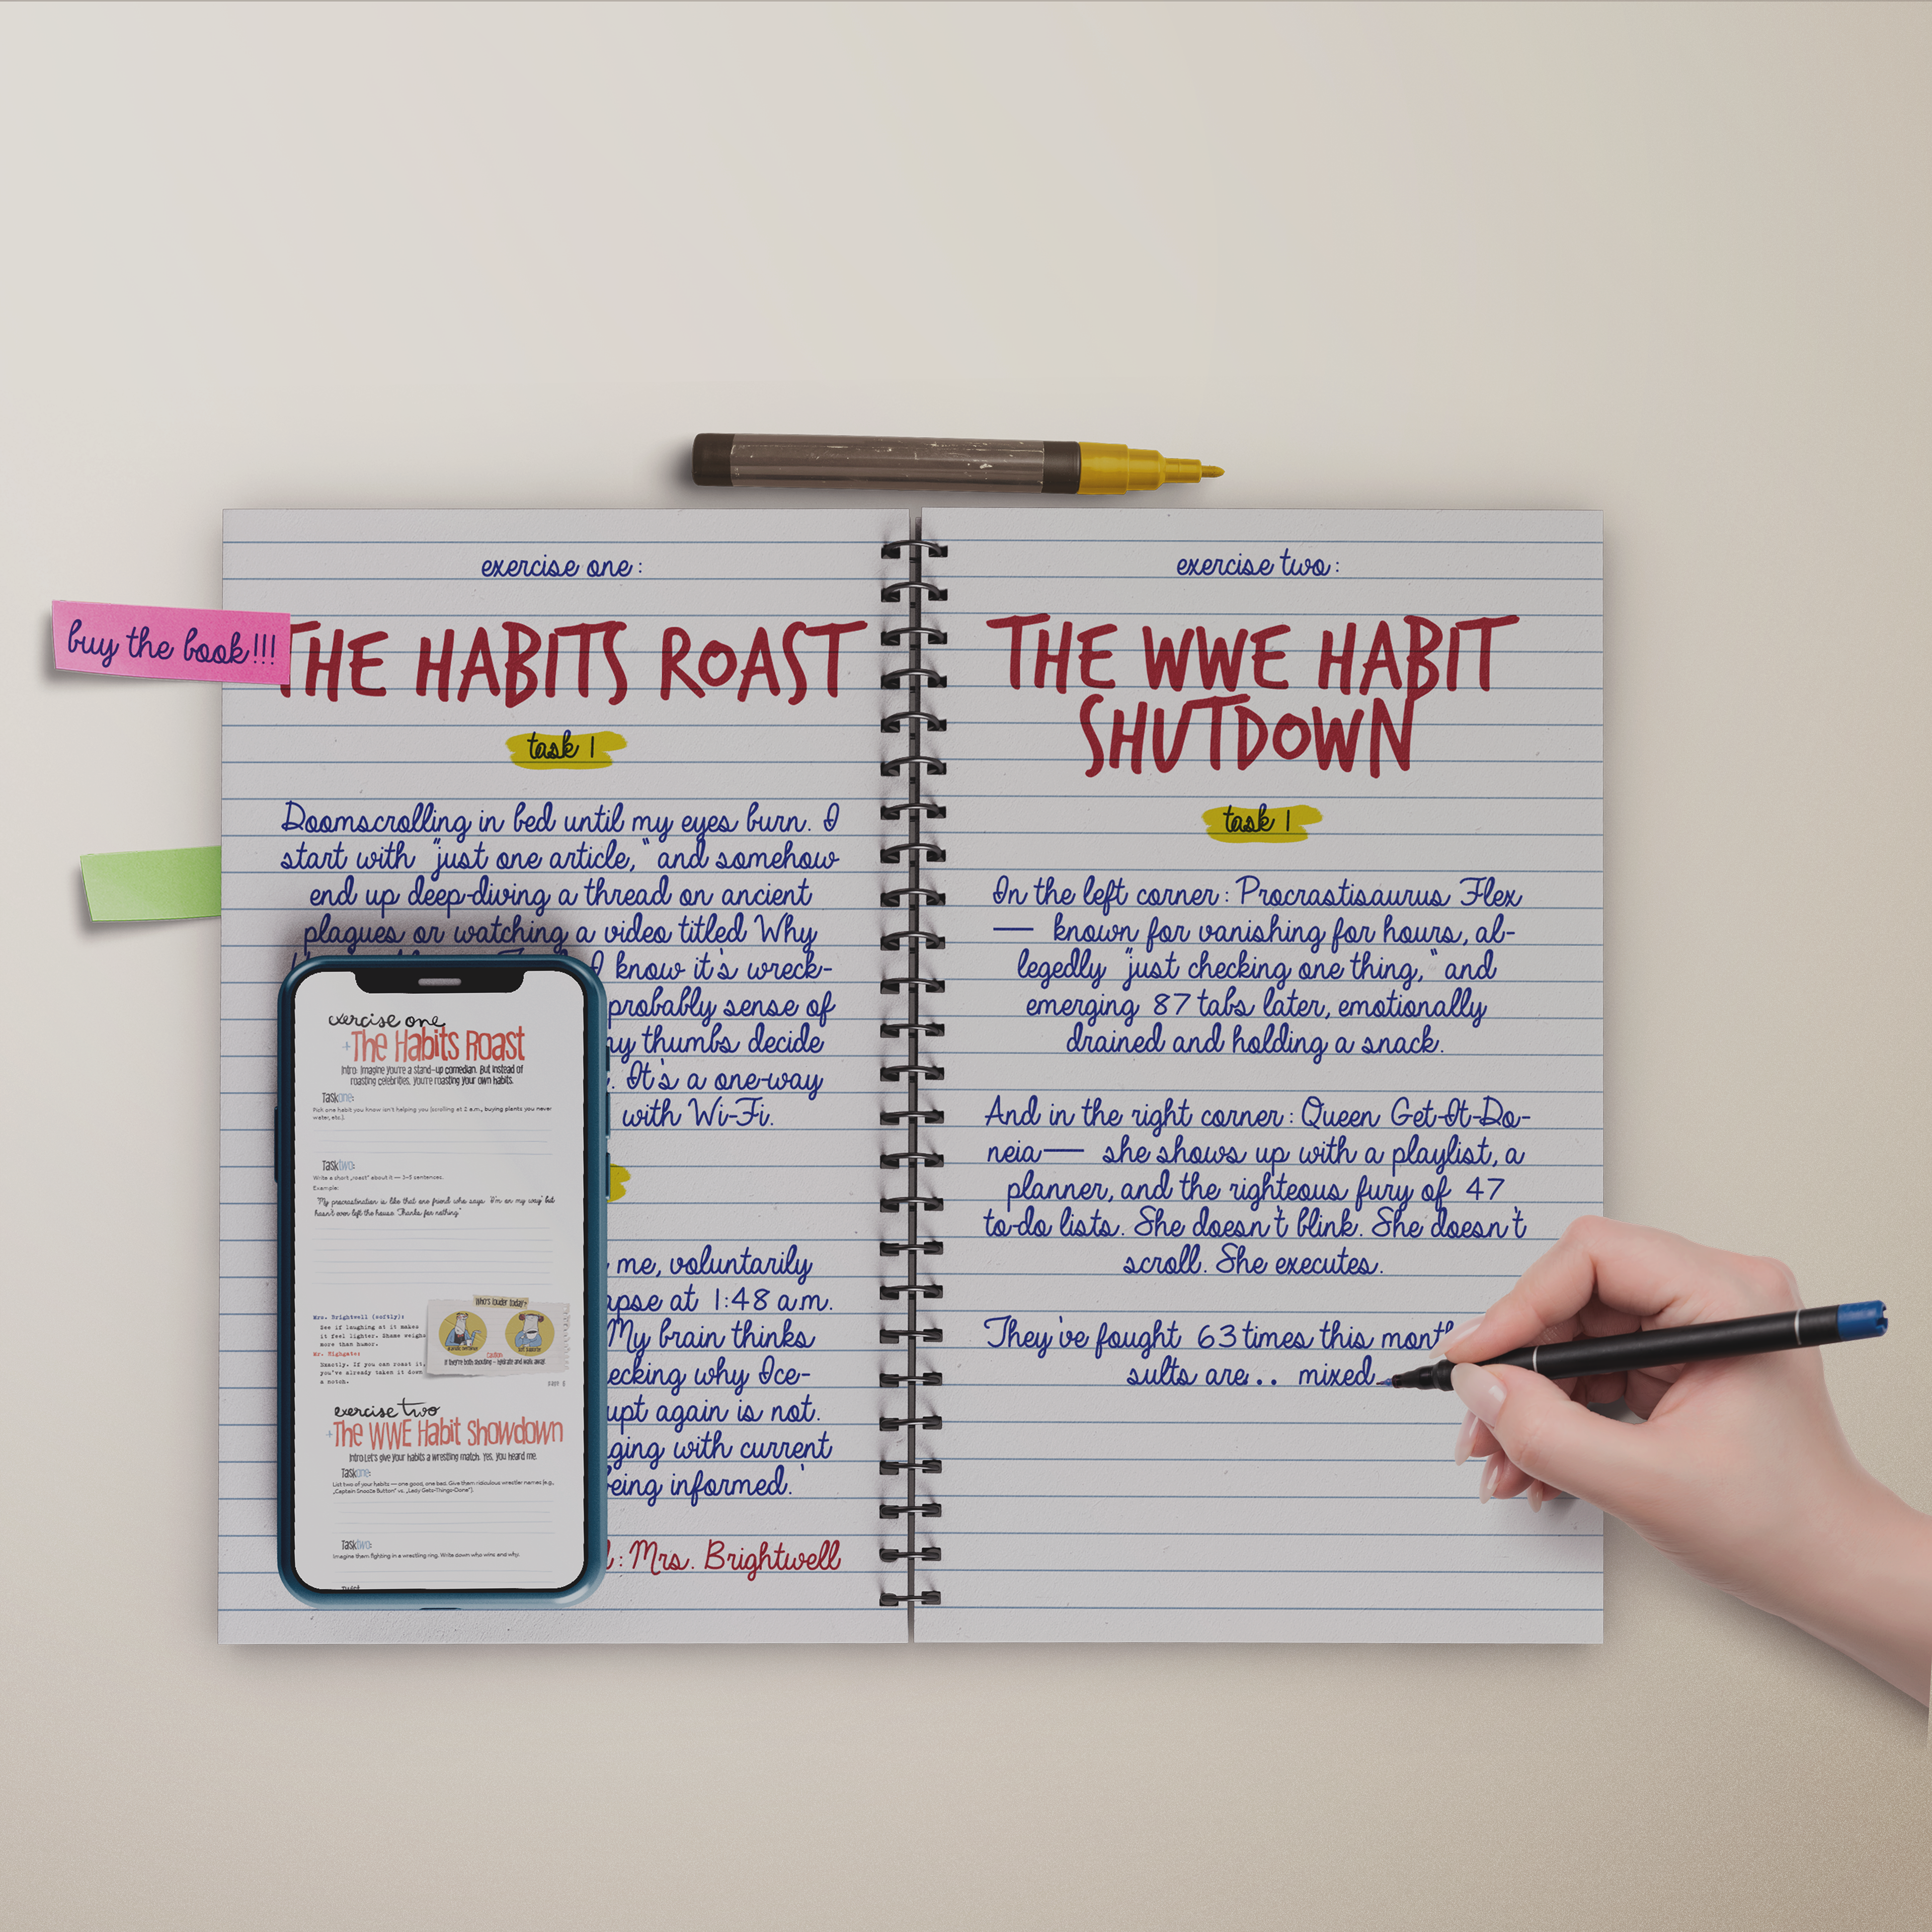 exercise one:
THE HABITS ROAST
buy the book!!!
task 1
Doomscrolling in bed until my eyes burn. I
start with "just one article," and somehow
end up deep-diving a thread on ancient
plagues or watching a video titled Why
I know it's wreck-
probably sense of
my thumbs decide
It's a one-way
with Wi-Fi.
me, voluntarily
at 1:48 a.m.
My brain thinks
why Ice-
again is not.
with current
being informed.'
: Mrs. Brightwell
exercise two:
THE WWE HABIT
SHUTDOWN
task 1
In the left corner: Procrastisaurus Flex
— known for vanishing for hours, al-
legedly "just checking one thing," and
emerging 87 tabs later, emotionally
drained and holding a snack.
And in the right corner: Queen Get-It-Do-
neia — she shows up with a playlist, a
planner, and the righteous fury of 47
to-do lists. She doesn't blink. She doesn't
scroll. She executes.
They've fought 63 times this month
sults are... mixed.
exercise one
The Habits Roast
Intro: Imagine you're a stand-up comedian. But instead of
roasting celebrities, you're roasting your own habits.
Taskone:
Pick one habit you know isn't helping you (scrolling at 2 a.m., buying plants you never
water, etc.).
Tasktwo:
Write a short „roast" about it — 3-5 sentences.
Example:
"My procrastination is like that one friend who says 'I'm on my way' but
hasn't even left the house. Thanks for nothing."
Mrs. Brightwell (softly):
See if laughing at it makes
it feel lighter. Shame weighs
more than humor.
Mr. Highgate:
Exactly. If you can roast it,
you've already taken it down
a notch.
Who's louder today?
Caution
If they're both shouting – hydrate and walk away.
exercise two
The WWE Habit Showdown
Intro: Let's give your habits a wrestling match. Yes, you heard me.
Taskone:
List two of your habits — one good, one bad. Give them ridiculous wrestler names (e.g.,
„Captain Snooze Button" vs. „Lady Gets-Things-Done").
Tasktwo:
Imagine them fighting in a wrestling ring. Write down who wins and why.